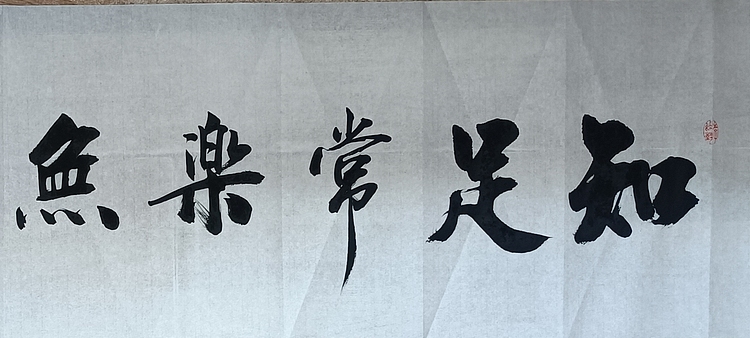 知足常楽無